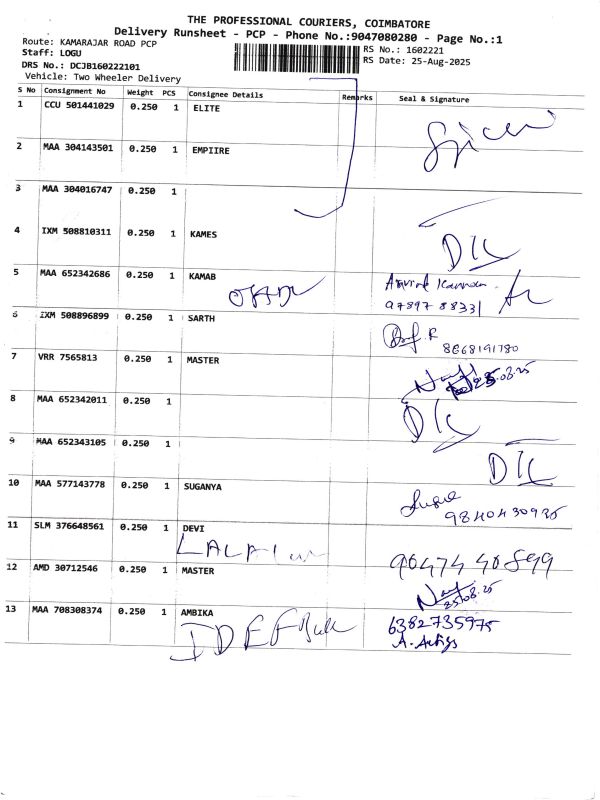 THE PROFESSIONAL COURIERS, COIMBATORE
Delivery Runsheet - PCP - Phone No.:9047080280 - Page No.:1
Route: KAMARAJAR ROAD PCP
RS No.: 1602221
Staff: LOGU
RS Date: 25-Aug-2025
DRS No.: DCJB160222101
Vehicle: Two Wheeler Delivery
S No Consignment No Weight PCS Consignee Details Remarks Seal & Signature
1 CCU 501441029 0.250 1 ELITE
2 MAA 304143501 0.250 1 EMPIIRE
3 MAA 304016747 0.250 1
4 IXM 508810311 0.250 1 KAMES
DIL
5 MAA 652342686 0.250 1 KAMAB
97897 88331
6 IXM 508896899 0.250 1 SARTH
8668191780
7 VRR 7565813 0.250 1 MASTER
25.08.25
8 MAA 652342011 0.250 1
DIL
9 MAA 652343105 0.250 1
DIL
10 MAA 577143778 0.250 1 SUGANYA
9840430935
11 SLM 376648561 0.250 1 DEVI
90474 40899
12 AMD 30712546 0.250 1 MASTER
25.08.25
13 MAA 708308374 0.250 1 AMBIKA
6382735975